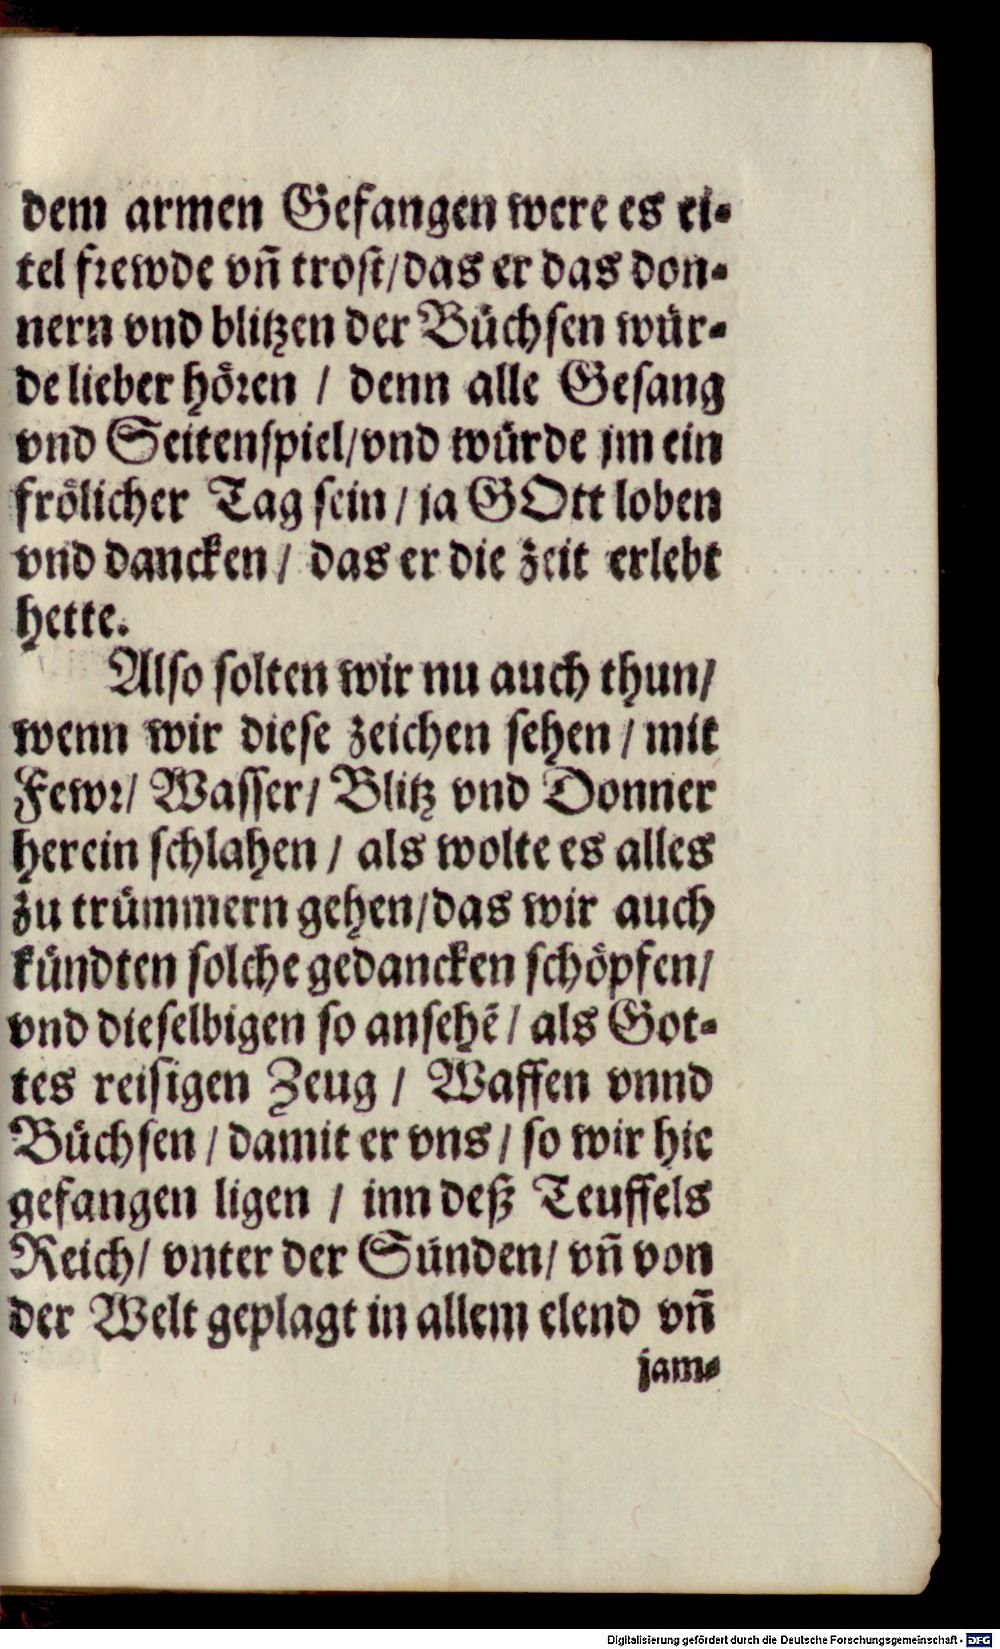 dem armen Gefangen were es ei-
tel frewde vñ trost/das er das don-
nern vnd blitzen der Büchsen wür-
de lieber hören / denn alle Gesang
vnd Seitenspiel/vnd würde jm ein
frölicher Tag sein / ja GOtt loben
vnd dancken / das er die zeit erlebt
hette.
Also solten wir nu auch thun/
wenn wir diese zeichen sehen / mit
Fewr/ Wasser/ Blitz vnd Donner
herein schlahen / als wolte es alles
zu trümmern gehen/das wir auch
kündten solche gedancken schöpfen/
vnd dieselbigen so ansehē / als Got-
tes reisigen Zeug / Waffen vnnd
Büchsen / damit er vns / so wir hie
gefangen ligen / inn deß Teuffels
Reich/ vnter der Sünden/ vñ von
der Welt geplagt in allem elend vñ
jam-
Digitalisierung gefördert durch die Deutsche Forschungsgemeinschaft - DFG